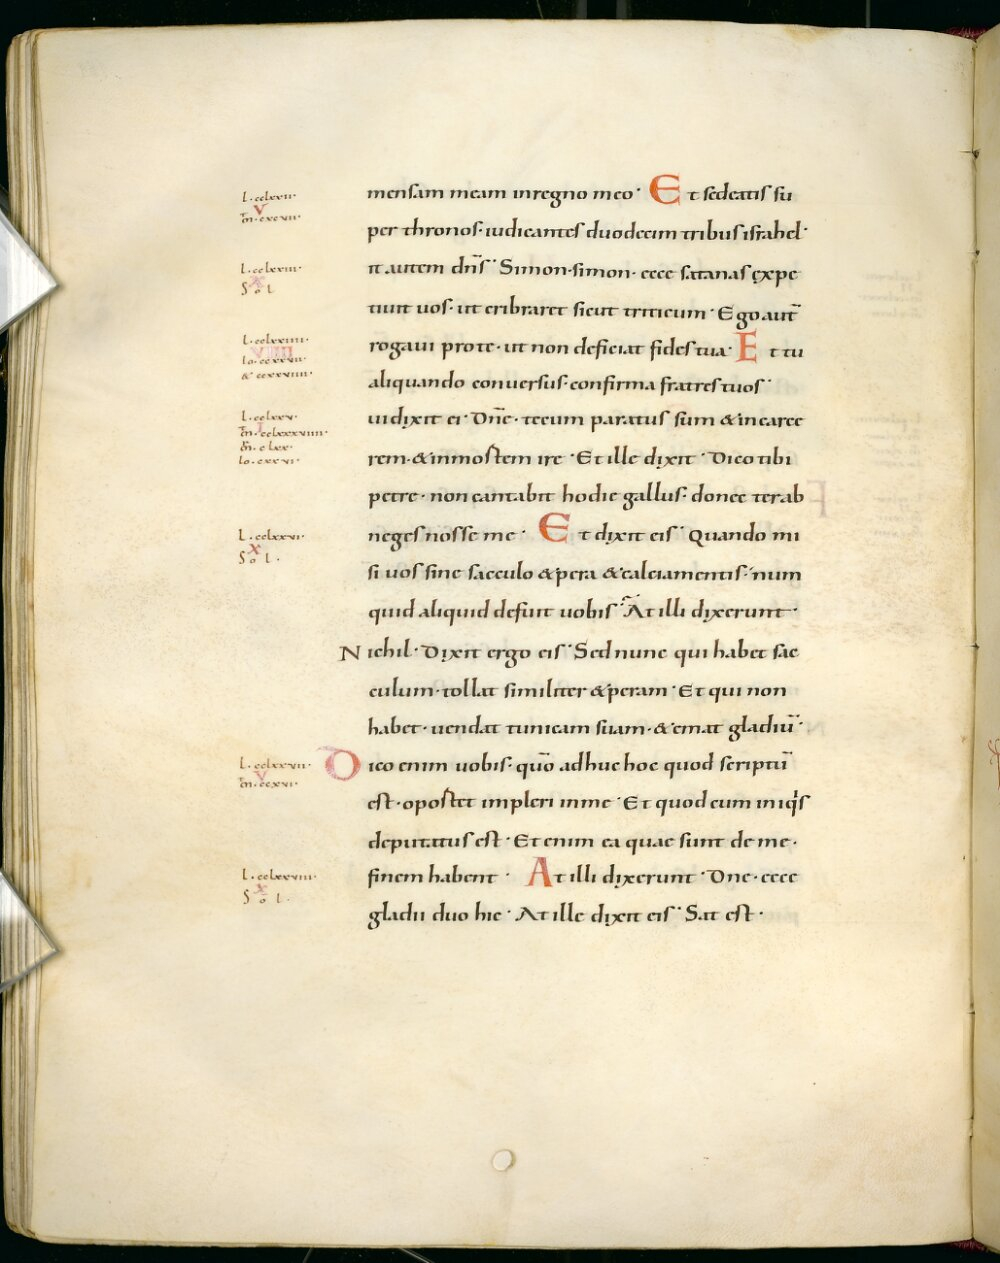 mensam meam inregno meo· Et sedeatis su
per thronos· iudicantes duodecim tribus isrāhel·
it autem dn̄s· Simon·simon· ecce satanas expe
tiuit uos· ut cribraret sicut triticum· Ego aut̄
rogaui prote· ut non deficiat fides tua· Et tu
aliquando conuersus· confirma fratres tuos·
ui dixit ei· Dn̄e· tecum paratus sum & incarce
rem· & inmortem ire· Et ille dixit· Dico tibi
petre· non cantabit hodie gallus· donec ter ab
neges nosse me· Et dixit eis· Quando mi
si uos sine sacculo & pera & calciamentis· num
quid aliquid defuit uobis· At illi dixerunt·
Nichil· Dixit ergo eis· Sed nunc qui habet sac
culum· tollat similiter & peram· Et qui non
habet· uendat tunicam suam· & emat gladiū·
Dico enim uobis· quō adhuc hoc quod scriptū
est· oportet impleri inme· Et quod cum iniqi̇s
deputatus est· Etenim ea quae sunt de me·
finem habent· At illi dixerunt· Dne· ecce
gladii duo hic· At ille dixit eis· Sat est·
L·cclxxii·
V
L·cclxxiii·
X
Sol
L·cclxxiiii·
L·cclxxv·
I
m̄·cclxxxviiii·
m̄r·clxx·
Io·cxxvi·
L·cclxxvi·
X
Sol·
L·cclxxvii·
V
m̄r·ccxvi·
L·cclxxviii·
X
Sol·